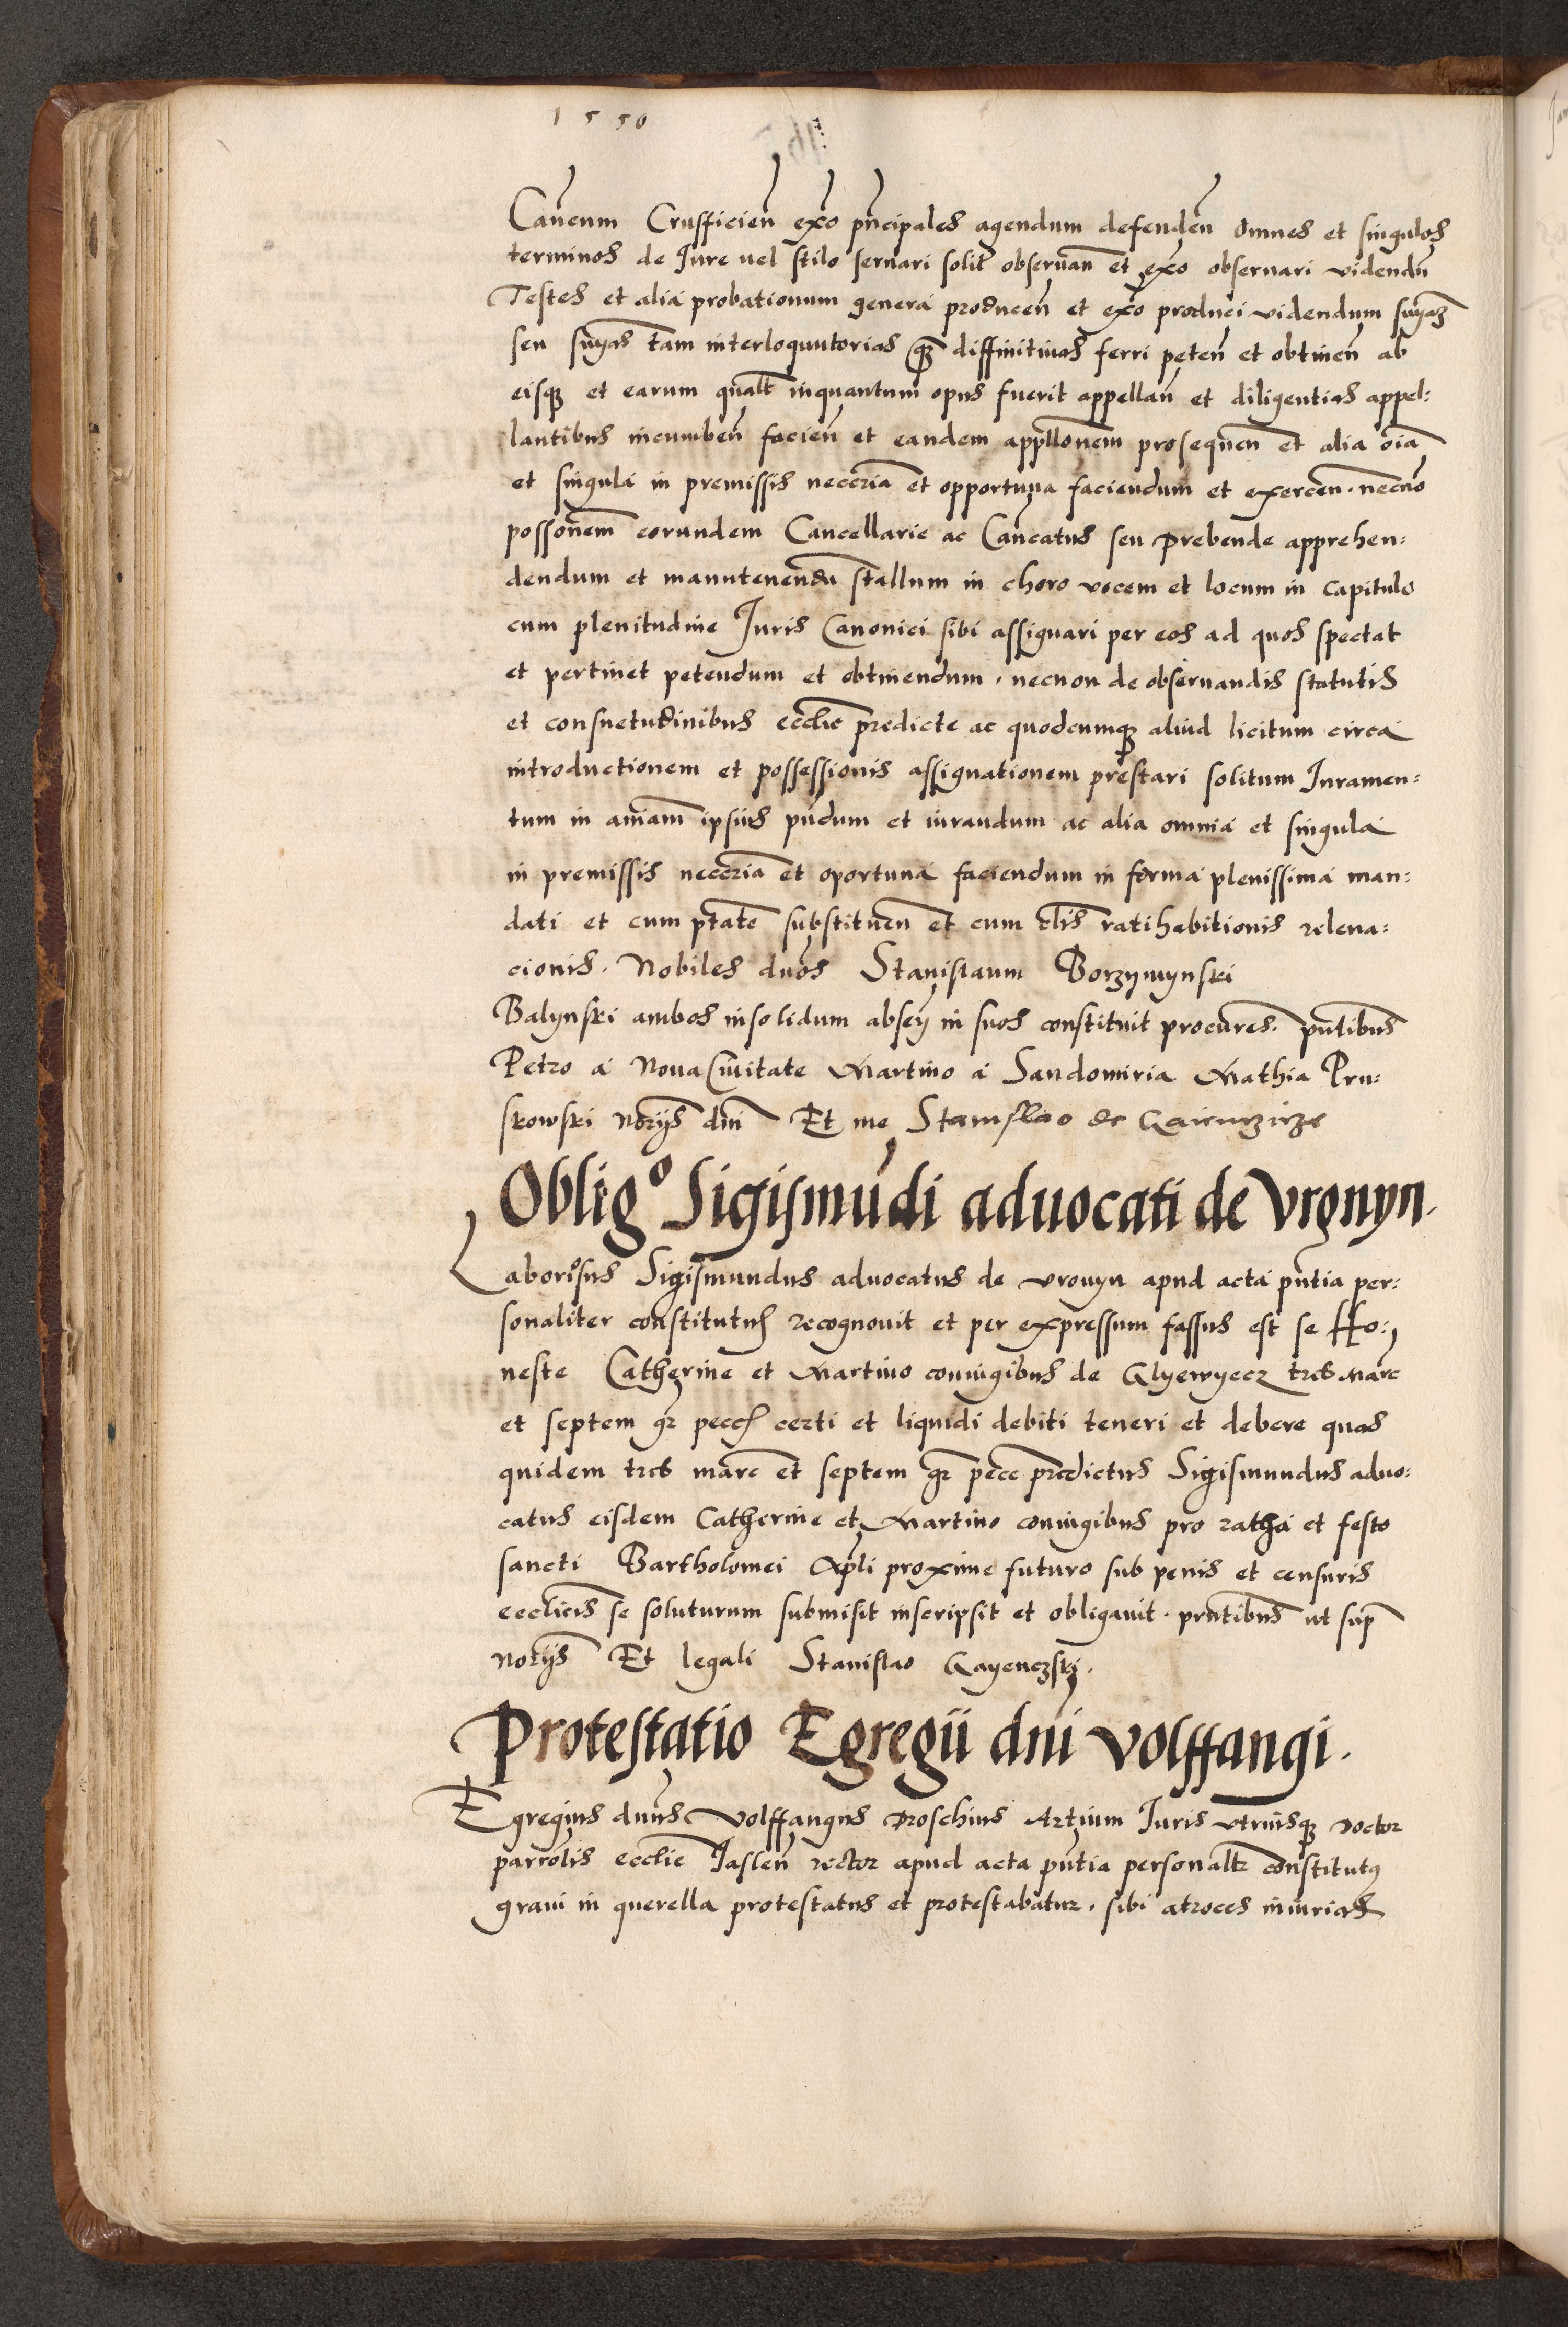 1550
Cañcum Crusficień exo pñcipales agendum defendeń omnes et singulos
terminos de Iure vel stilo seruari solit obseruań et exo obseruari videndū
Testes et alia probationum genera produceń et exo produci videndum
seu tam interloquutorias qz diffinitiuas ferri peteń et obtineń ab
eisqz et earum qualt inquantum opus fuerit appellań et diligentias appel:
lantibus incumbeń facień et eandem appllonem prosequeń et alia oia
et singula in premissis necēria et opportuna faciendum et exerceń. necno
possonem eorundem Cancellarie ac Cañcatus seu prebende apprehen:
dendum et manutenendū stallum in choro vocem et locum in capitulo
cum plenitudine Iuris Canonici sibi assignari per eos ad quos spectat
et pertinet petendum et obtinendum. necnon de obseruandis statutis
et consuetudinibus ecclie predicte ac quodcumqz aliud licitum circa
introductionem et possessionis assignationem prestari solitum Iuramen:
tum in aniam ipsius pñdum et iurandum ac alia omnia et singula
in premissis necēria et oportuna faciendum in forma plenissima man:
dati et cum ptate substitueń et cum clis ratihabitionis releua:
cionis. Nobiles dños Stanislaum Borzymynski
Balynski ambos insolidum abseń in suos constituit procures. pñtibus
Petro a Noua Ciuitate Martino a Sandomiria Mathia Pru:
skowski Noriis dni Et me Stanislao de
Oblig° Sigismūdi aduocati de Vronyn.
Laboriosus Sigismundus aduocatus de vronyn apud acta pñtia per:
sonaliter constitutus recognouit et per expressum fassus est se Ho:
neste Catherine et Martino coniugibus de Glyewyecz tres Marc
et septem gr pecc certi et liquidi debiti teneri et debere quas
quidem tres marc et septem gr pecc predictus Sigismundus aduo:
catus eisdem Catherine et Martino coniugibus pro ratha et festo
sancti Bartholomei Apli proxime futuro sub penis et censuris
eccliciis se soluturum submisit inscripsit et obligauit. pñtibus ut sup
notiis Et legali Stanislao Gayenczski.
Protestatio Egregii dñi Volffangi.
Egregius dñus Volffangus Droschius Artium Iuris vtriusqz doctor
parrolis ecclie Iasleń rector apud acta pñtia personaltr constitutus
graui in querella protestatus et protestabatur. sibi atroces iniurias